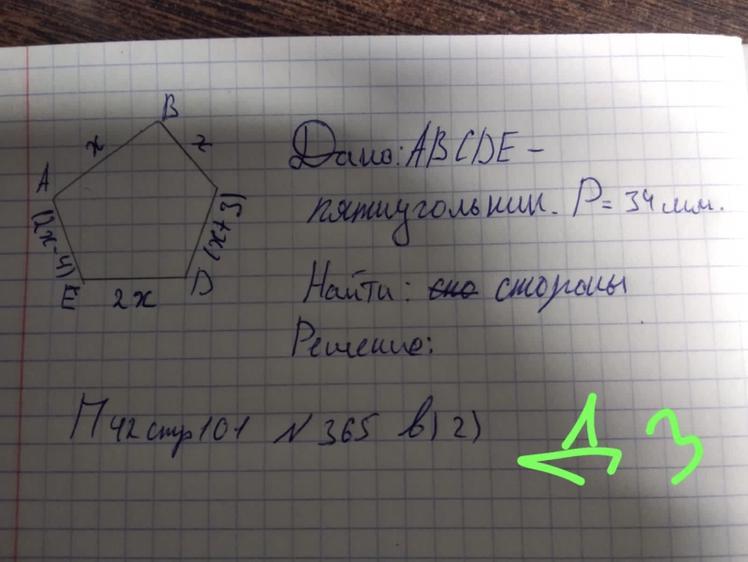 B
x
z
A
(2x-4)
(x+3)
E
2x
D
Дано: ABCDE -
пятиугольник. P = 34 мм.
Найти: стороны
Решение:
П 42 стр 101 N 365 в) г)
ДЗ